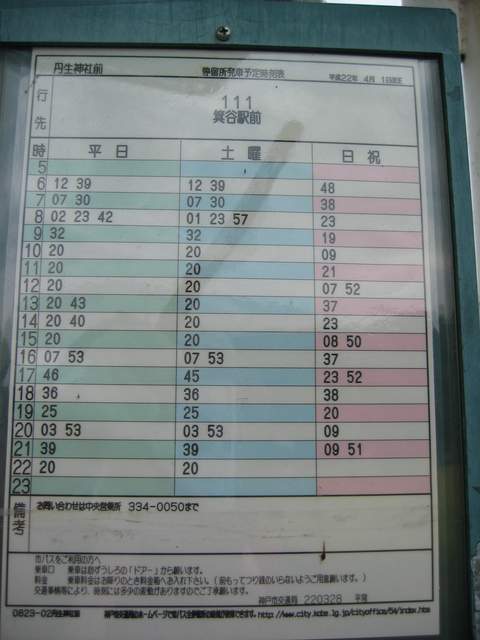 丹生神社前 停留所発車予定時刻表 平成22年 4月 1日改正
行先 111
箕谷駅前
時 平日 土曜 日祝
5
6 12 39 12 39 48
7 07 30 07 30 38
8 02 23 42 01 23 57 23
9 32 32 19
10 20 20 09
11 20 20 21
12 20 20 07 52
13 20 43 20 37
14 20 40 20 23
15 20 20 08 50
16 07 53 07 53 37
17 46 45 23 52
18 36 36 38
19 25 25 20
20 03 53 03 53 09
21 39 39 09 51
22 20 20
23
備考 お問い合わせは中央営業所 334-0050まで
市バスをご利用の方へ
乗車口 乗車は必ずうしろの「ドアー」から願います。
料金 乗車料金はお降りのとき料金箱へお入れ下さい。（前もってつり銭のいらないようご用意願います。）
交通事情等により、時刻には多少の変動がありますのでご了承願います。
神戸市交通局 220328 平成
0823-02丹生神社前 神戸市交通局のホームページで市バス全停留所の時刻が検索できます。http://www.city.kobe.lg.jp/cityoffice/54/index.htm